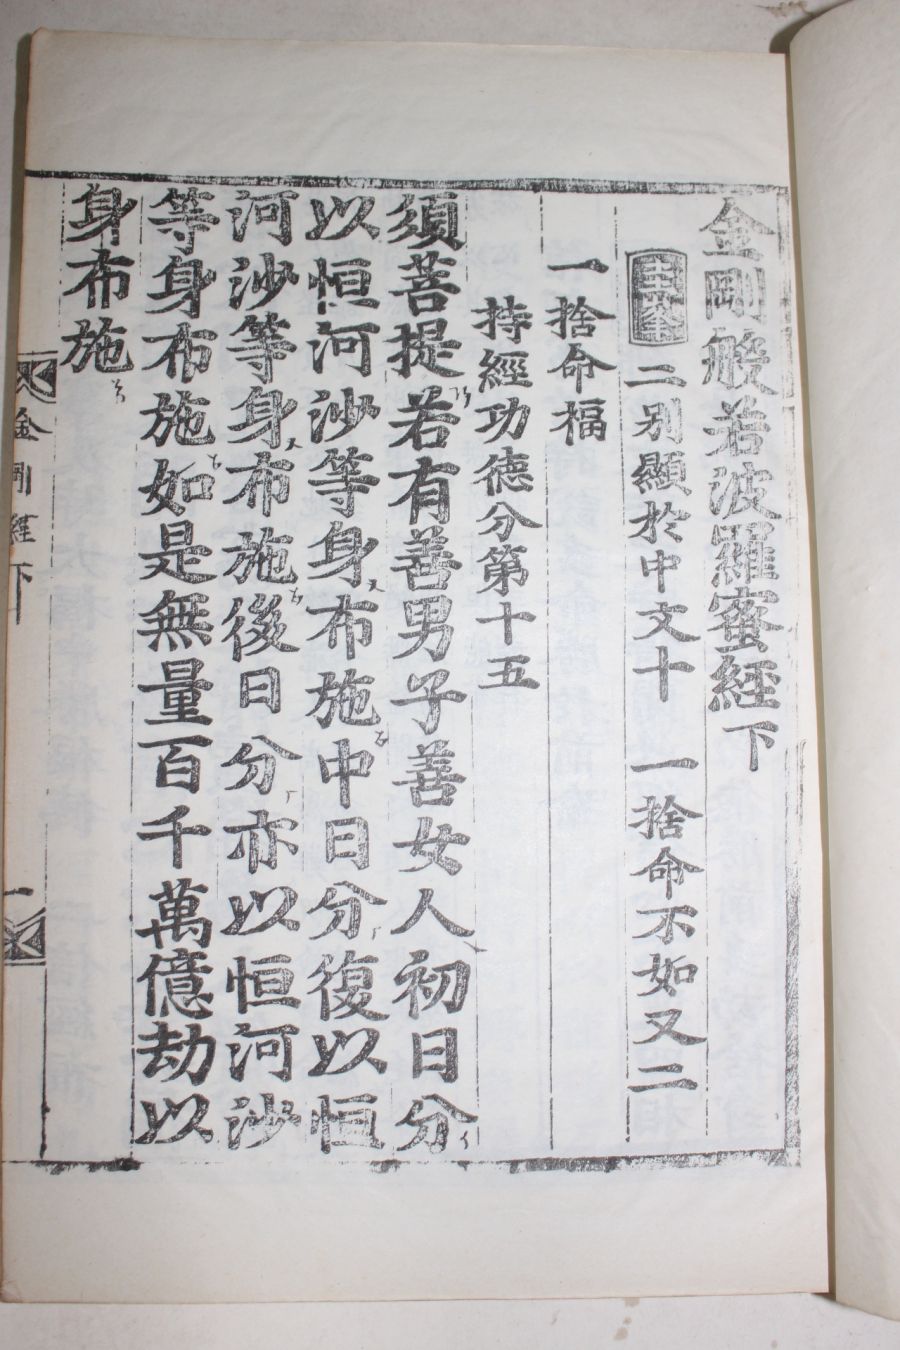 金剛般若波羅蜜經下
圭峯 二別顯於中文十 一捨命不如又二
一捨命福
持經功德分第十五
須菩提若有善男子善女人初日分
以恒河沙等身布施中日分復以恒
河沙等身布施後日分亦以恒河沙
等身布施如是無量百千萬億劫以
身布施
金剛經下
一